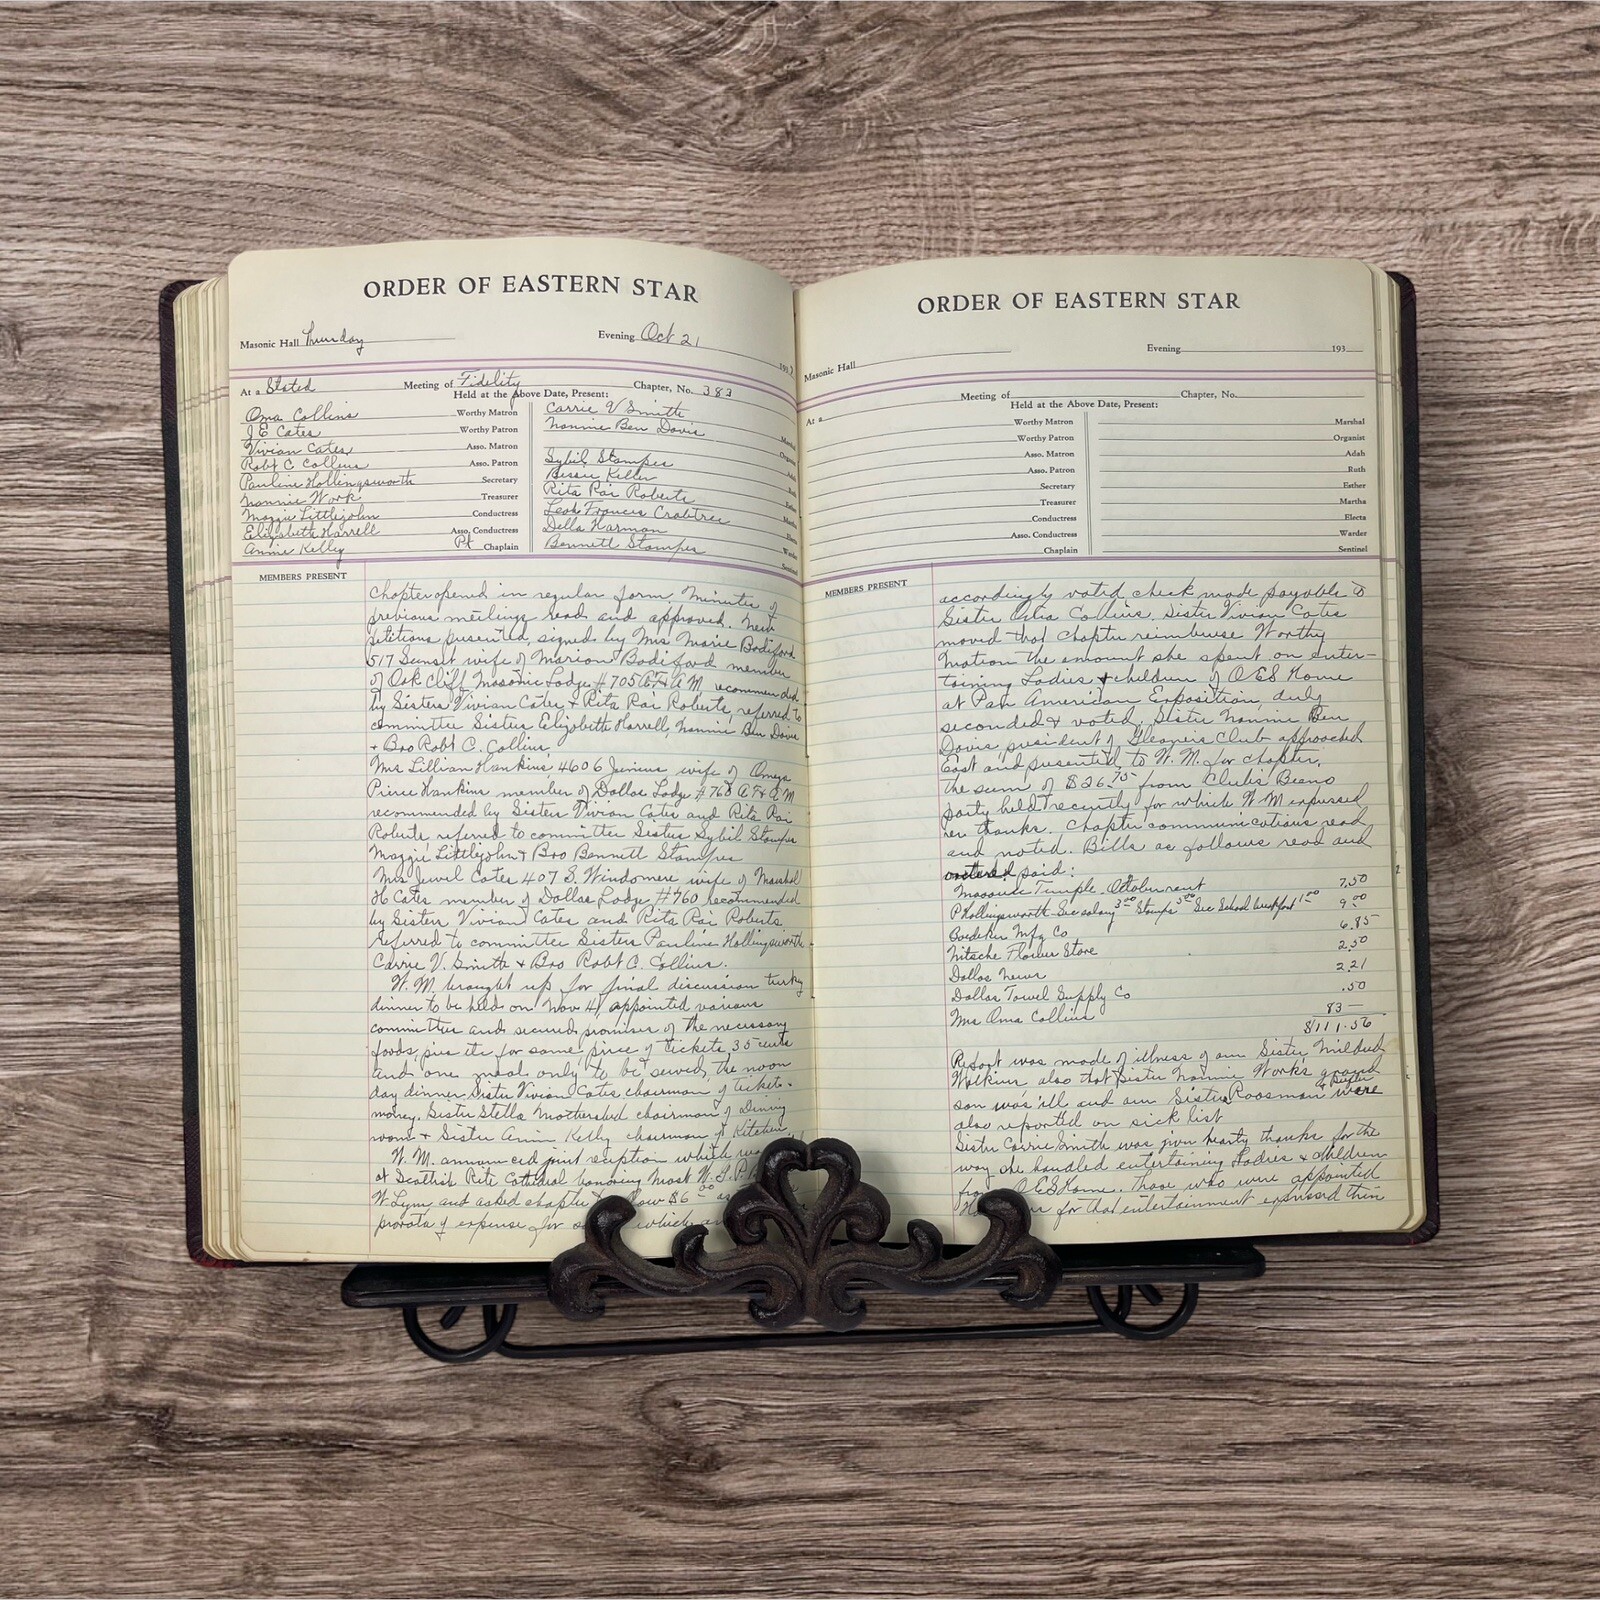 ORDER OF EASTERN STAR
Masonic Hall Thursday Evening Oct 21 1937
At a Stated Meeting of Fidelity Chapter, No. 383
Held at the Above Date, Present:
Oma Collins Worthy Matron
J E Cates Worthy Patron
Vivian Cates Asso. Matron
Robt C Collins Asso. Patron
Pauline Hollingsworth Secretary
Nannie Work Treasurer
Maggie Littlejohn Conductress
Elizabeth Harrell Asso. Conductress
Annie Kelley Pt Chaplain
Carrie V Smith Marshal
Nannie Ben Davis Organist
Sybil Stamper
Bessie Keller
Rita Rai Roberts Esther
Leah Frances Crabtree Martha
Della Harman Electa
Bennett Stamper Warder
Sentinel
MEMBERS PRESENT
Chapter opened in regular form, Minutes of
previous meetings read and approved. New
petitions presented, signed by Mrs Marie Bodiford
517 Sunset wife of Marion Bodiford member
of Oak Cliff Masonic Lodge #705 A.F.& A M recommended
by Sisters Vivian Cates & Rita Rai Roberts, referred to
committee Sisters Elizabeth Harrell, Nannie Ben Davis
+ Bro Robt C. Collins.
Mrs Lillian Hankins 4606 Junius wife of Omega
Pierce Hankins member of Dallas Lodge #760 A F & A M
recommended by Sisters Vivian Cates and Rita Rai
Roberts, referred to committee Sisters Sybil Stamper
Maggie Littlejohn & Bro Bennett Stamper
Mrs Jewel Cates 407 S. Windomere wife of Marshal
H Cates member of Dallas Lodge #760 recommended
by Sisters Vivian Cates and Rita Rai Roberts
referred to committee Sisters Pauline Hollingsworth
Carrie V. Smith & Bro Robt C. Collins.
W. M. brought up for final discussion turkey
dinner to be held on Nov 4, appointed various
committees and secured promises of the necessary
foods, pies etc for same, price of tickets, 35 cents
and one meal only to be served, the noon
day dinner Sister Vivian Cates chairman of ticket
money. Sister Stella Mothershed chairman of Dining
room & Sister Annie Kelly chairman of Kitchen
W. M. announced joint reception which was
at Scottish Rite Cathedral honoring Most W. G. P.
W. Lynn and asked chapter to allow $6.00 as
prorata of expense for which
ORDER OF EASTERN STAR
Masonic Hall Evening 193
At a Meeting of Chapter, No.
Held at the Above Date, Present:
Worthy Matron
Worthy Patron
Asso. Matron
Asso. Patron
Secretary
Treasurer
Conductress
Asso. Conductress
Chaplain
Marshal
Organist
Adah
Ruth
Esther
Martha
Electa
Warder
Sentinel
MEMBERS PRESENT
accordingly voted check made payable to
Sister Collins. Sister Vivian Cates
moved that chapter reimburse Worthy
Matron the amount she spent on enter-
taining Ladies & children of O E S Home
at Pan American Exposition, duly
seconded & voted. Sister Nannie Ben
Davis president of Gleaners Club approached
East and presented to W. M. for chapter,
the sum of $26.75 from Clubs Beano
party held recently for which W M expressed
er thanks. Chapter communications read
and noted. Bills as follows read and
ordered paid:
Masonic Temple October rent 7.50
P Hollingsworth Sec salary 3.00 Stamps 5.00 Sec School breakfast 1.00 9.00
Boedeker Mfg Co 6.85
Nitsche Flower Store 2.50
Dallas News 2.21
Dallas Towel Supply Co .50
Mrs Oma Collins 83 —
$111.56
Report was made of illness of our Sister Mildred
Walkins also that Sister Nannie Works grand
son was ill and our Sister Roosman were
also reported on sick list
Sister Carrie Smith was given hearty thanks for the
way she handled entertaining Ladies & children
from O E S Home. Those who were appointed
for that entertainment expressed their